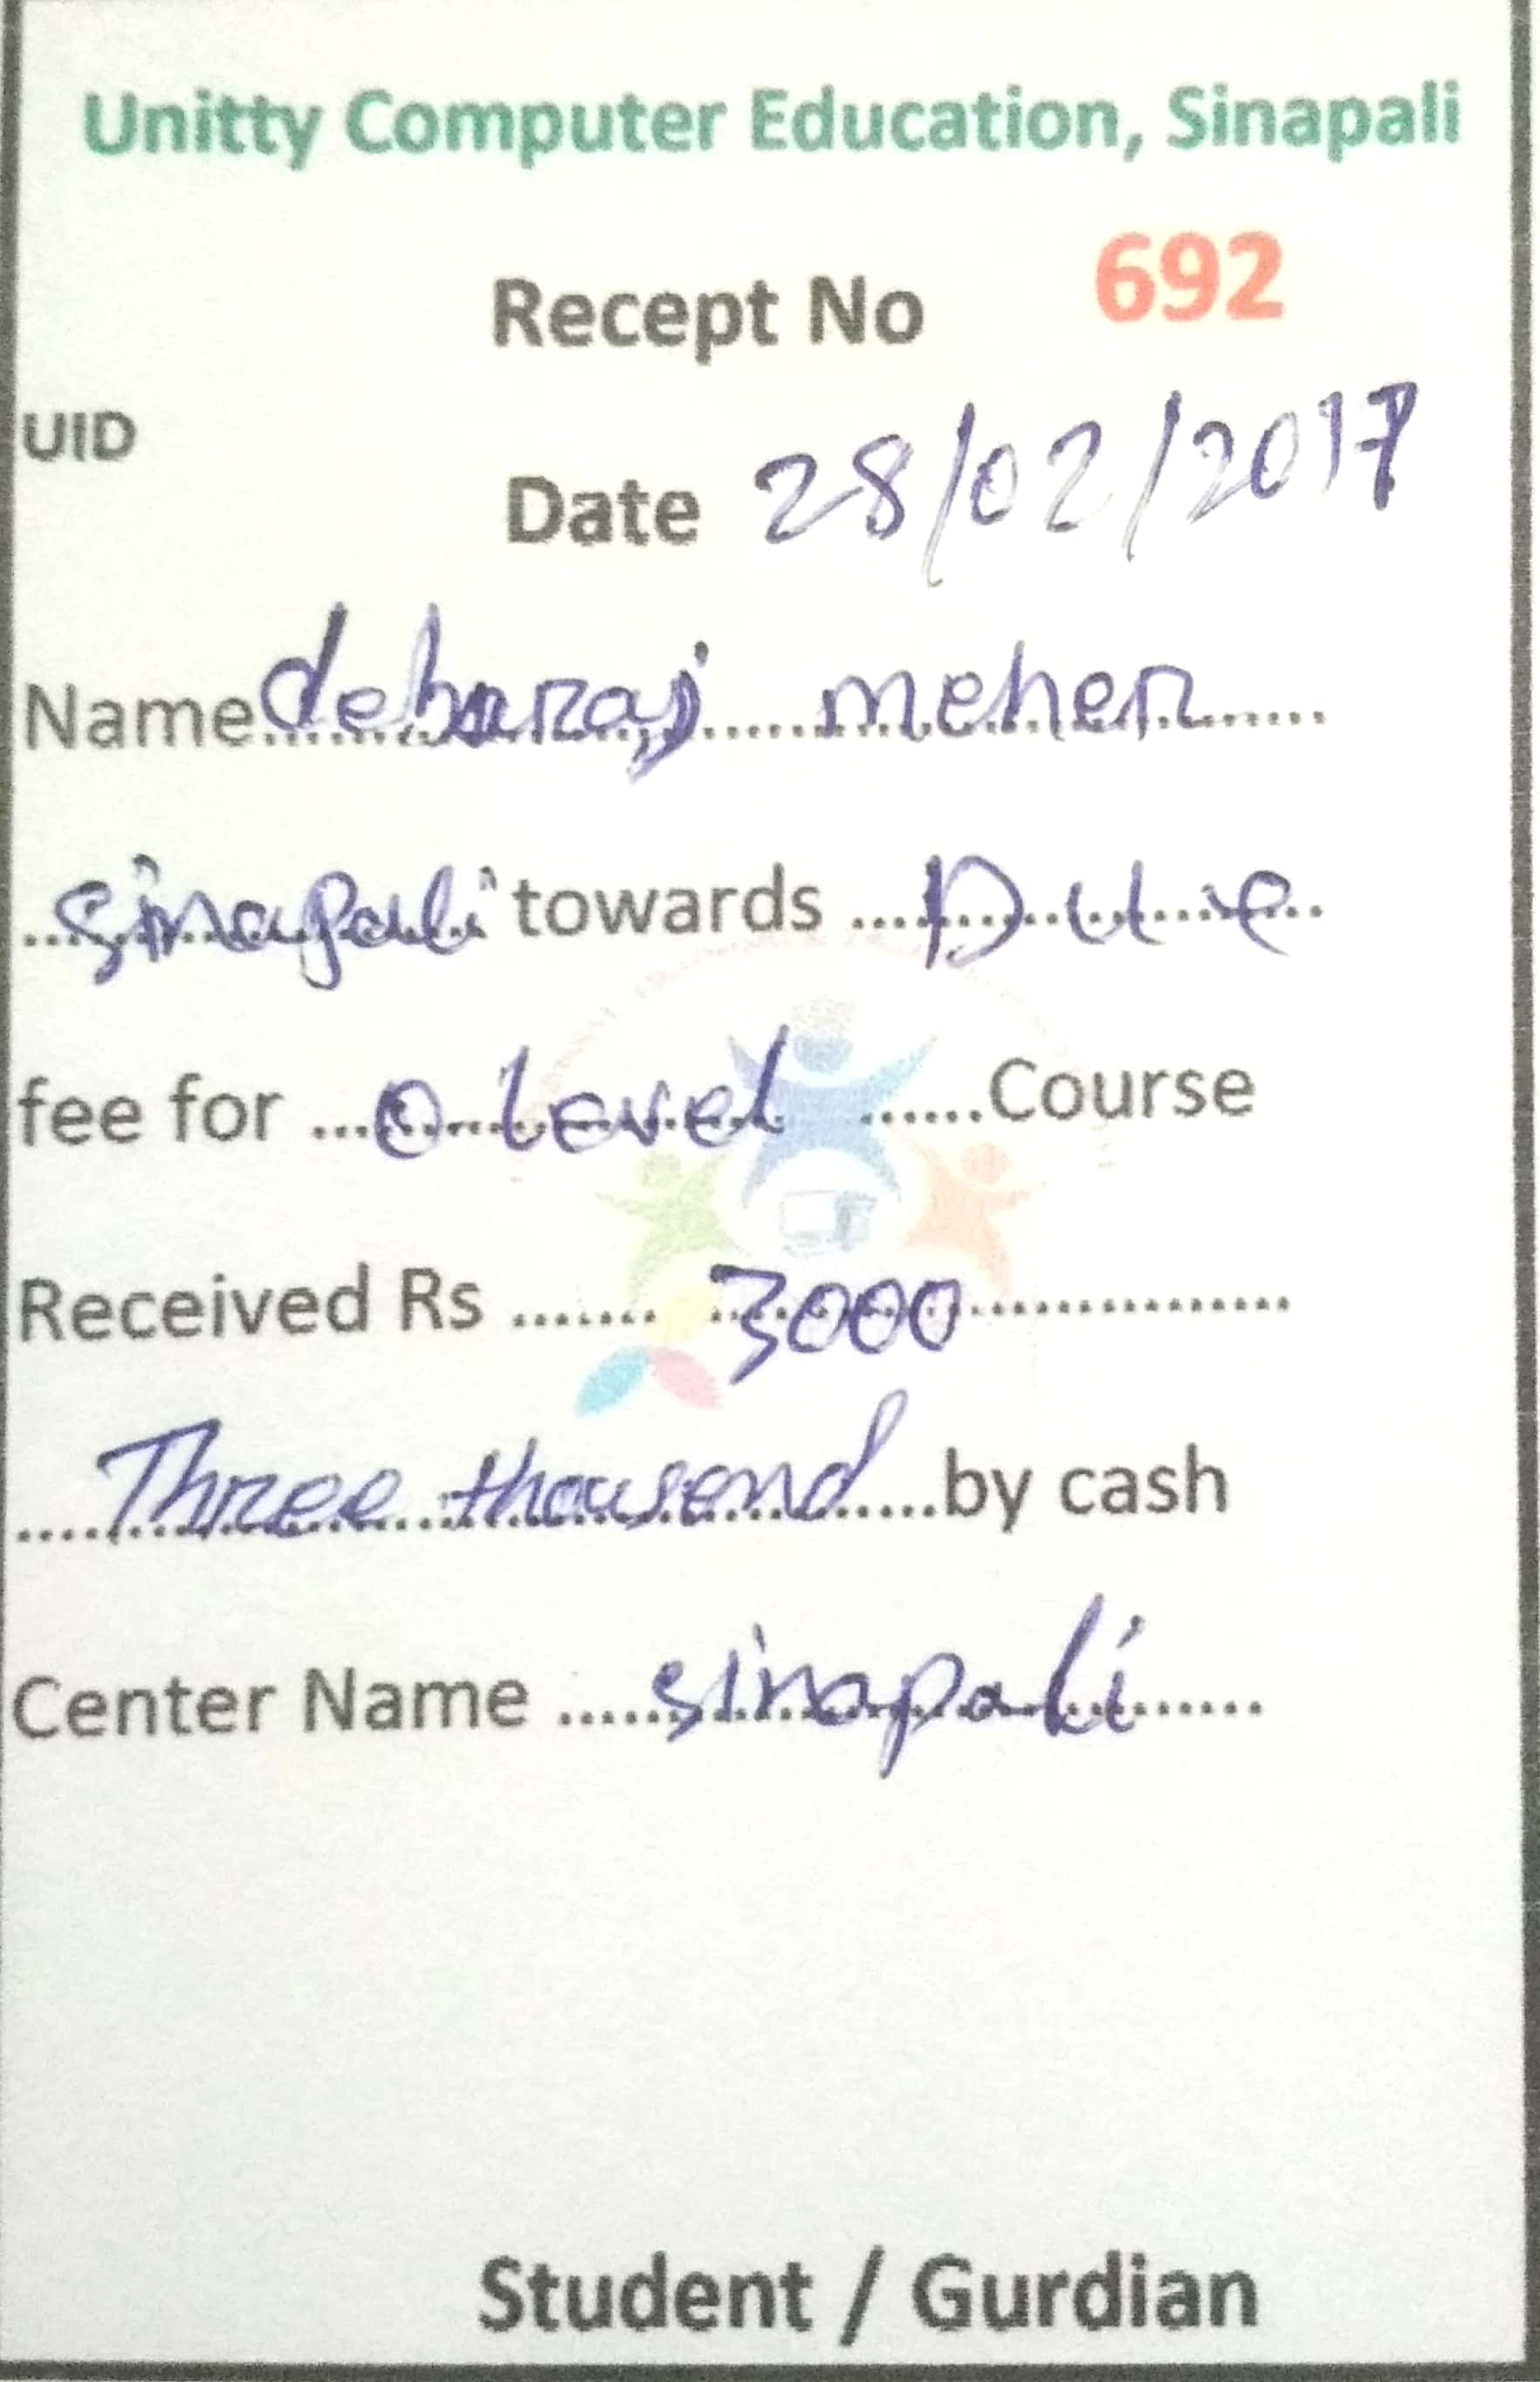 Unitty Computer Education, Sinapali
Recept No 692
UID
Date 28/02/2017
Name debaraj meher
sinapali towards Due
fee for O level Course
Received Rs 3000
Three thousend by cash
Center Name sinapali
Student / Gurdian